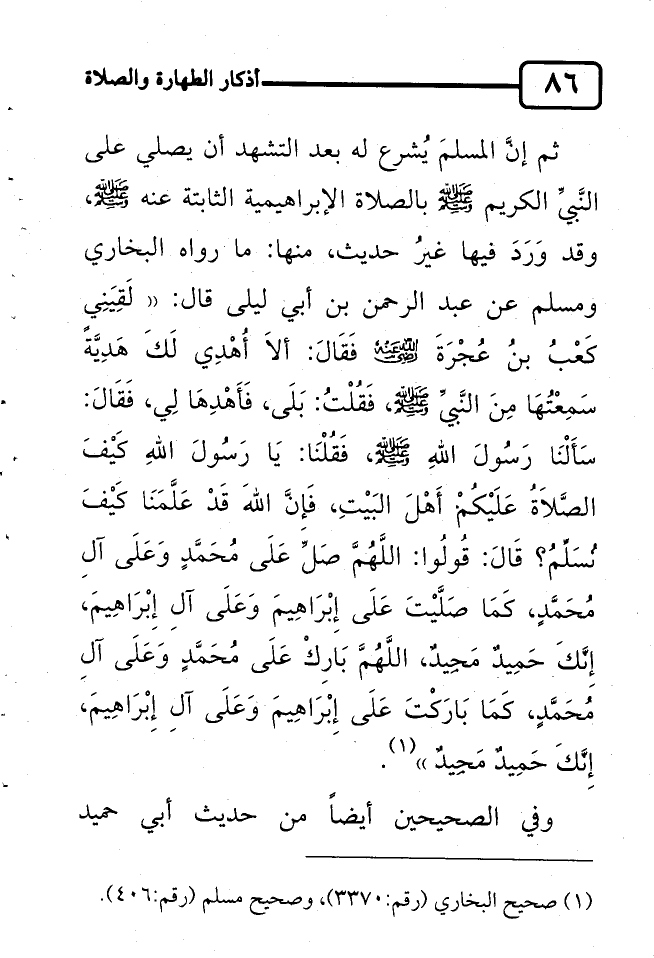 ٨٦ أذكار الطهارة والصلاة
ثم إنَّ المسلمَ يُشرع له بعد التشهد أن يصلي على
النَّبيِّ الكريم ﷺ بالصلاة الإبراهيمية الثابتة عنه ﷺ،
وقد وَرَدَ فيها غيرُ حديث، منها: ما رواه البخاري
ومسلم عن عبد الرحمن بن أبي ليلى قال: « لَقِيَنِي
كَعْبُ بنُ عُجْرَةَ رَضِيَ اللَّهُ عَنْهُ فَقَالَ: ألاَ أُهْدِي لَكَ هَدِيَّةً
سَمِعْتُهَا مِنَ النَّبيِّ ﷺ، فَقُلْتُ: بَلَى، فَأَهْدِهَا لِي، فَقَالَ:
سَأَلْنَا رَسُولَ اللهِ ﷺ، فَقُلْنَا: يَا رَسُولَ اللهِ كَيْفَ
الصَّلاَةُ عَلَيْكُمْ أَهْلَ البَيْتِ، فَإِنَّ اللهَ قَدْ عَلَّمَنَا كَيْفَ
نُسَلِّمُ؟ قَالَ: قُولُوا: اللَّهُمَّ صَلِّ عَلَى مُحَمَّدٍ وَعَلَى آلِ
مُحَمَّدٍ، كَمَا صَلَّيْتَ عَلَى إِبْرَاهِيمَ وَعَلَى آلِ إِبْرَاهِيمَ،
إِنَّكَ حَمِيدٌ مَجِيدٌ، اللَّهُمَّ بَارِكْ عَلَى مُحَمَّدٍ وَعَلَى آلِ
مُحَمَّدٍ، كَمَا بَارَكْتَ عَلَى إِبْرَاهِيمَ وَعَلَى آلِ إِبْرَاهِيمَ،
إِنَّكَ حَمِيدٌ مَجِيدٌ »(١).
وفي الصحيحين أيضاً من حديث أبي حميد
(١) صحيح البخاري (رقم:٣٣٧٠)، وصحيح مسلم (رقم:٤٠٦).